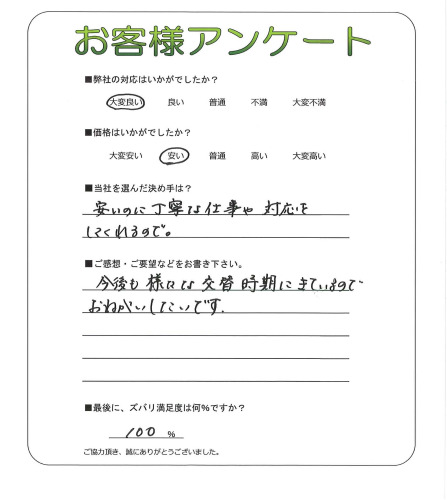 お客様アンケート
■弊社の対応はいかがでしたか?
大変良い 良い 普通 不満 大変不満
■価格はいかがでしたか?
大変安い 安い 普通 高い 大変高い
■当社を選んだ決め手は?
安いのに丁寧な仕事や対応を
してくれるので。
■ご感想・ご要望などをお書き下さい。
今後も様々な交替時期にきているので
おねがいしたいです.
■最後に、ズバリ満足度は何%ですか?
100 %
ご協力頂き、誠にありがとうございました。